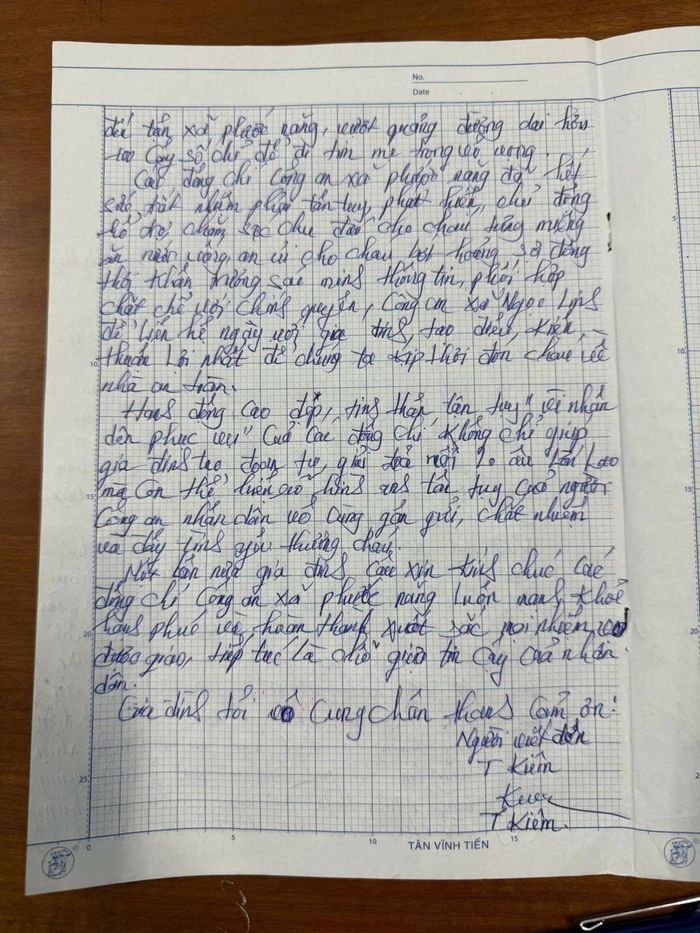 No.
Date
đến tận xã phước năng, vượt quảng đường dài hơn
cây số chỉ để đi tìm mẹ trong vô vọng.
Các đồng chí Công an xã phước năng đã hết
sức trách nhiệm phận tận tuy, phát hiện, chủ động
hổ trợ chăm sóc chu đáo cho cháu từng miếng
ăn nước uống, an ủi cho cháu bớt hoảng sợ đồng
thời khẩn trương xác minh thông tin, phối hợp
chặt chẽ với chính quyền, Công an xã Ngọc Linh
để liên hệ ngay với gia đình, tạo điều kiện
thuận lợi nhất để chúng ta kịp thời đón cháu về
nhà an toàn.
Hành động cao đẹp, tinh thần tận tuy "vì nhân
dân phục vụ" của các đồng chí không chỉ giúp
gia đình tạo đoàn tụ, giải toả nỗi lo âu lớn lao
mà còn thể hiện rõ hình ảnh tận tuy của người
Công an nhân dân vô cùng gần gủi, chất nhiệm
và đầy tình yêu thương cháu.
Một lần nữa gia đình cháu xin kính chúc các
đồng chí Công an xã phước năng luôn mạnh khoẻ
hạnh phúc và hoàn thành xuất sắc mọi nhiệm vụ
được giao, tiếp tục là chỗ giữa tin cậy của nhân
dân.
Gia đình tôi vô cùng chân thành cảm ơn!
Người viết đơn
T Kiêm
T Kiêm.
5
10
15
20
25
0
5
10
15
TÂN VĨNH TIẾN
5